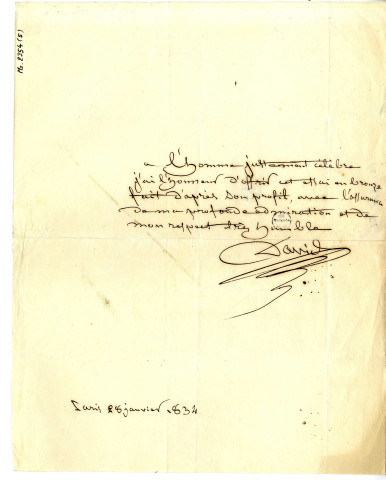 Ms. 2354 (5)
a l'homme justement célèbre
j'ai l'honneur d'ofrir cet essai en bronze
fait d'après son profil, avec l'assurance
de ma profonde admiration et de
mon respect très humble
David
Paris 28 janvier 1834